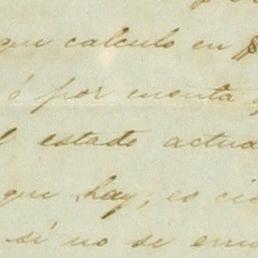 que calculo en $
ó por cuenta
l estado actua
que hay, es ci
si no se en